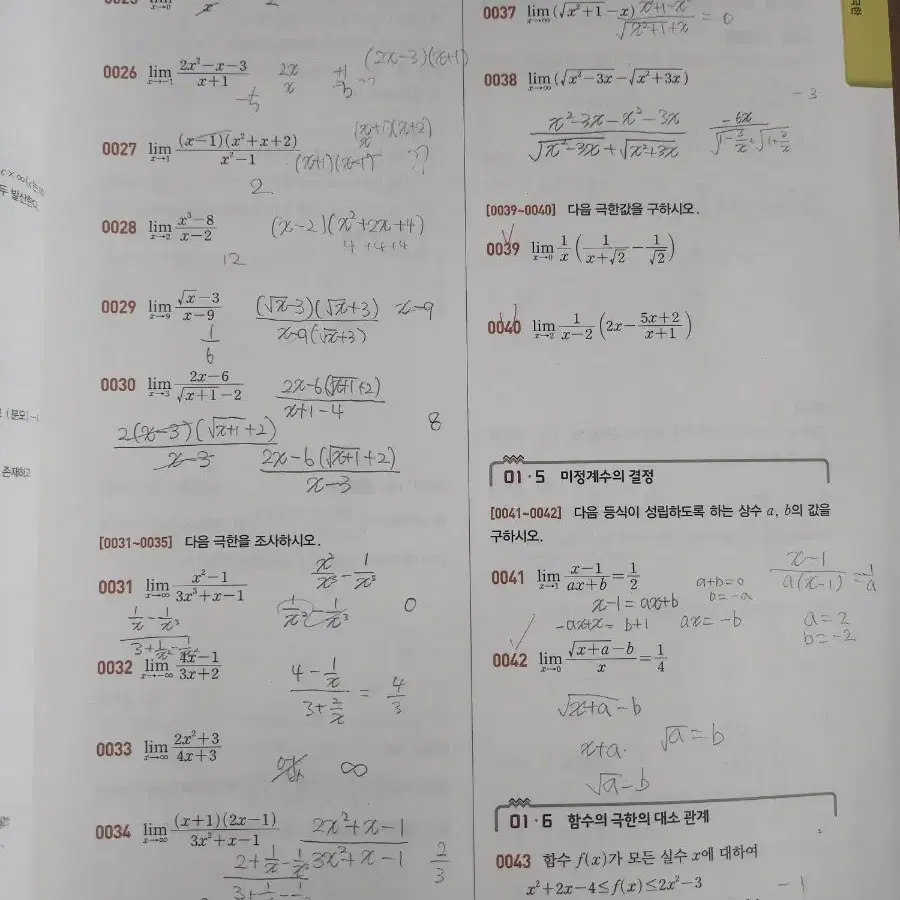 0026 lim x→-1 (2x²-x-3)/(x+1)
(2x-3)(x+1)
2x +1
x
0027 lim x→1 (x-1)(x²+x+2)/(x²-1)
(x+1)(x+2)
(x+1)(x-1)
2
0028 lim x→2 (x³-8)/(x-2)
(x-2)(x²+2x+4)
4+4+4
12
0029 lim x→9 (√x-3)/(x-9)
(√x-3)(√x+3)/x-9(√x+3)
x-9
1/6
0030 lim x→3 (2x-6)/(√(x+1)-2)
2x-6(√(x+1)+2)/(x+1-4)
8
2(x-3)(√(x+1)+2)/(x-3)
2x-6(√(x+1)+2)/(x-3)
[0031~0035] 다음 극한을 조사하시오.
0031 lim x→∞ (x²-1)/(3x³+x-1)
x²/x³-1/x³
1/x-1/x³
0
0032 lim x→-∞ (4x-1)/(3x+2)
(4-1/x)/(3+2/x) = 4/3
0033 lim x→∞ (2x²+3)/(4x+3)
∞
0034 lim x→∞ (x+1)(2x-1)/(3x²+x-1)
(2x²+x-1)/(3x²+x-1)
2/3
0037 lim x→∞ (√(x²+1)-x)
x²+1-x²/(√(x²+1)+x) = 0
0038 lim x→∞ (√(x²-3x)-√(x²+3x))
-3
(x²-3x-x²-3x)/(√(x²-3x)+√(x²+3x))
-6x/(√(1-3/x)+√(1+3/x))
[0039~0040] 다음 극한값을 구하시오.
0039 lim x→0 1/x (1/(x+√2)-1/√2)
0040 lim x→2 1/(x-2) (2x-(5x+2)/(x+1))
01·5 미정계수의 결정
[0041~0042] 다음 등식이 성립하도록 하는 상수 a, b의 값을
구하시오.
0041 lim x→1 (x-1)/(ax+b)=1/2
a+b=0
b=-a
(x-1)/a(x-1)=1/a
x-1=ax+b
-ax+x=b+1
ax=-b
a=2
b=-2
0042 lim x→0 (√(x+a)-b)/x=1/4
√(x+a)-b
x+a
√a=b
√a-b
01·6 함수의 극한의 대소 관계
0043 함수 f(x)가 모든 실수 x에 대하여
x²+2x-4≤f(x)≤2x²-3
-1